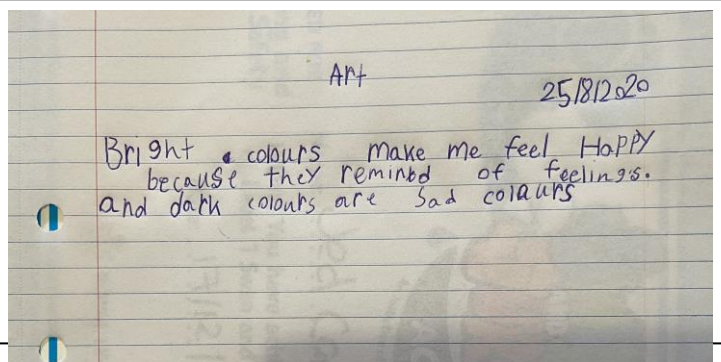 Art
25/8/2020
Bright colours make me feel Happy
because they reminbd of feelings.
and dark colours are sad colaurs